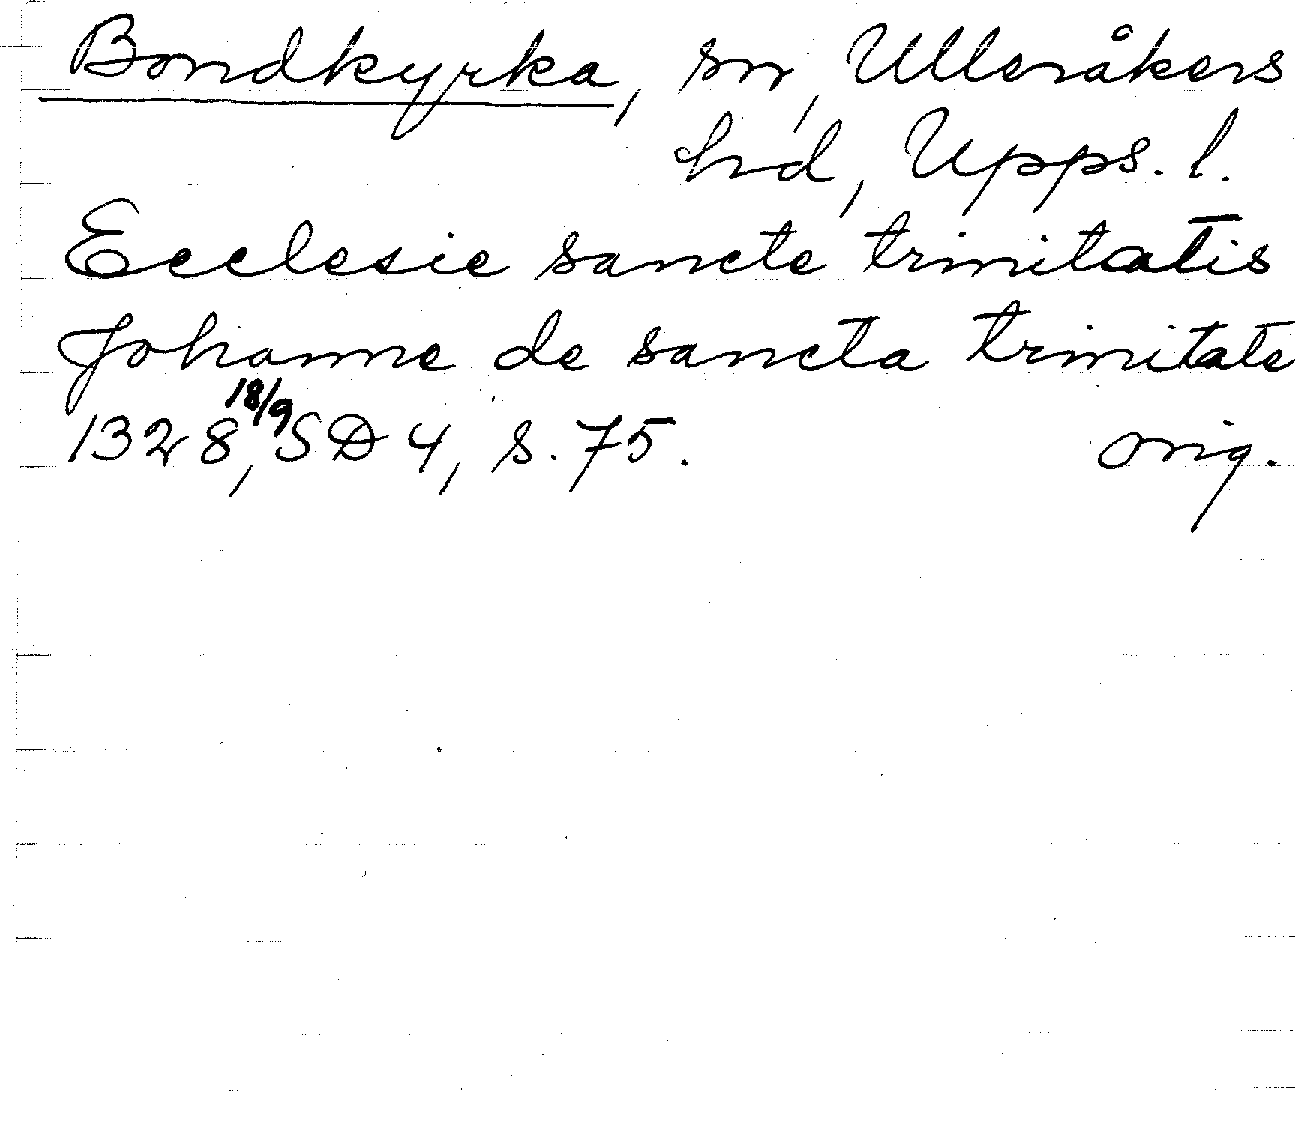 Bondkyrka, sn, Ulleråkers
hd, Upps. l.
Ecclesie sancte trinitatis
Johanne de sancta trinitate
1328 18/9, SD 4, s. 75. orig.